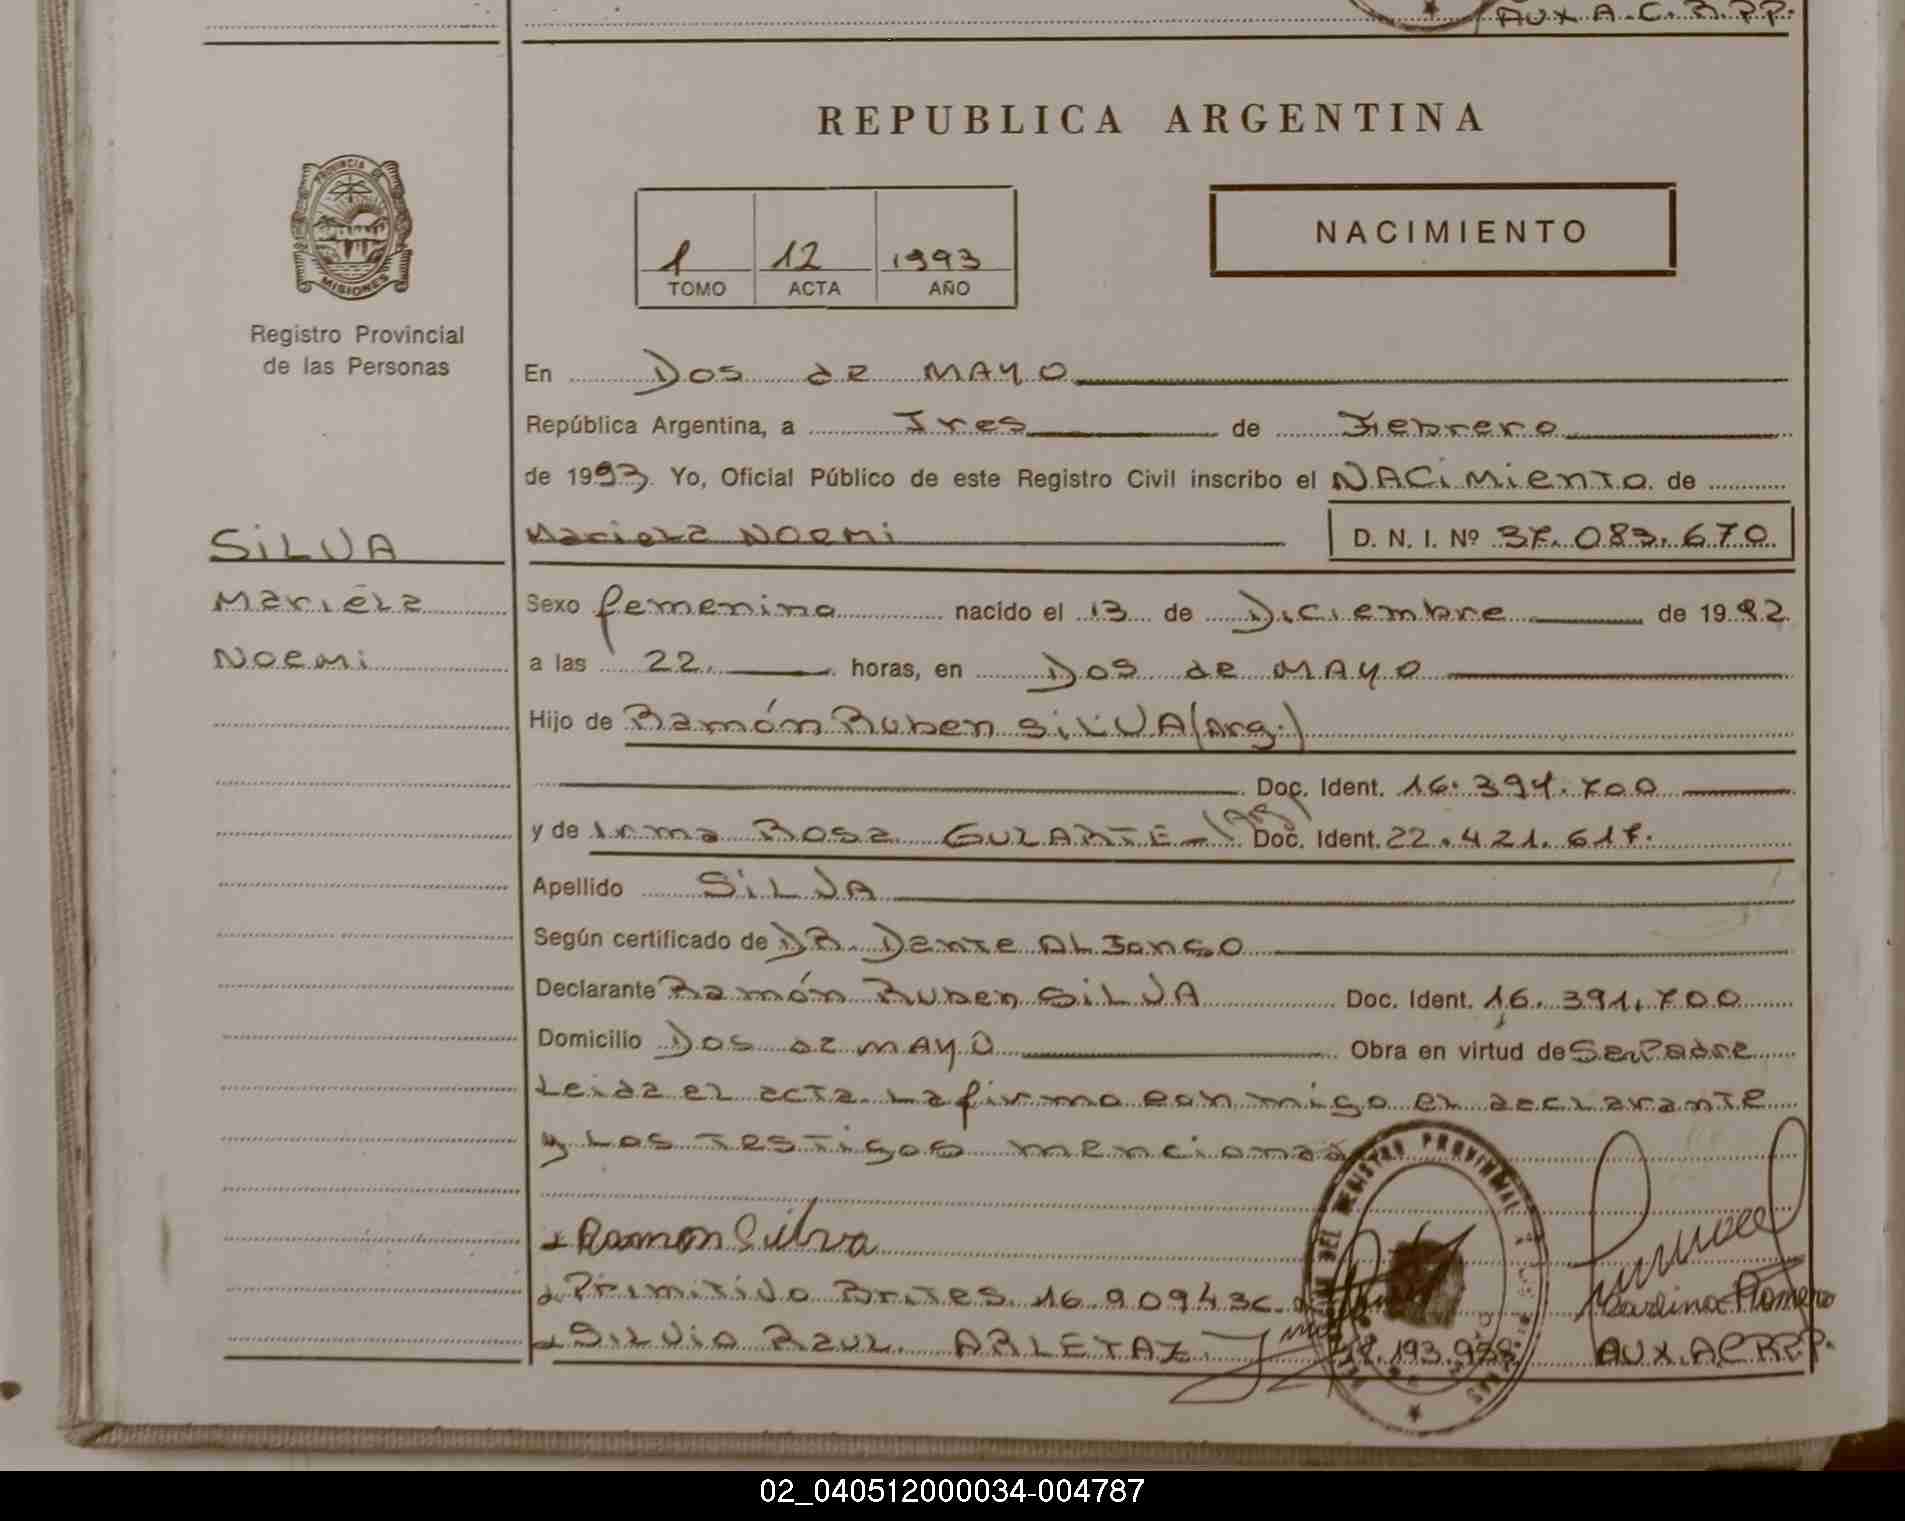 AUX.A.C.R.PP.
REPUBLICA ARGENTINA
PROVINCIA
MISIONES
Registro Provincial
de las Personas
1 12 1993
TOMO ACTA AÑO
NACIMIENTO
En Dos de MAYO
República Argentina, a Tres de Febrero
de 1993. Yo, Oficial Público de este Registro Civil inscribo el NACimiento de
SiLVA
Mariela Noemi D. N. I. Nº 37.083.670
Mariela
Noemi
Sexo femenino nacido el 13 de Diciembre de 1992
a las 22 horas, en Dos de MAYO
Hijo de Ramón Ruben SiLVA (Arg.)
Doc. Ident. 16.391.700
y de Irma Rosa GULARTE (Arg) Doc. Ident. 22.421.617.
Apellido SiLVA
Según certificado de DR. Dante ALFonso
Declarante Ramón Ruben SiLVA Doc. Ident. 16.391.700
Domicilio Dos de MAYO Obra en virtud de Ser Padre
Leida el acta La firma conmigo el declarante
y Los Testigos
REGISTRO PROVINCIAL
Ramon Silva
Primitivo Brites
Silvio Raul ARLETAZ
Romero
AUX.A.C.R.P.P.
02_040512000034-004787